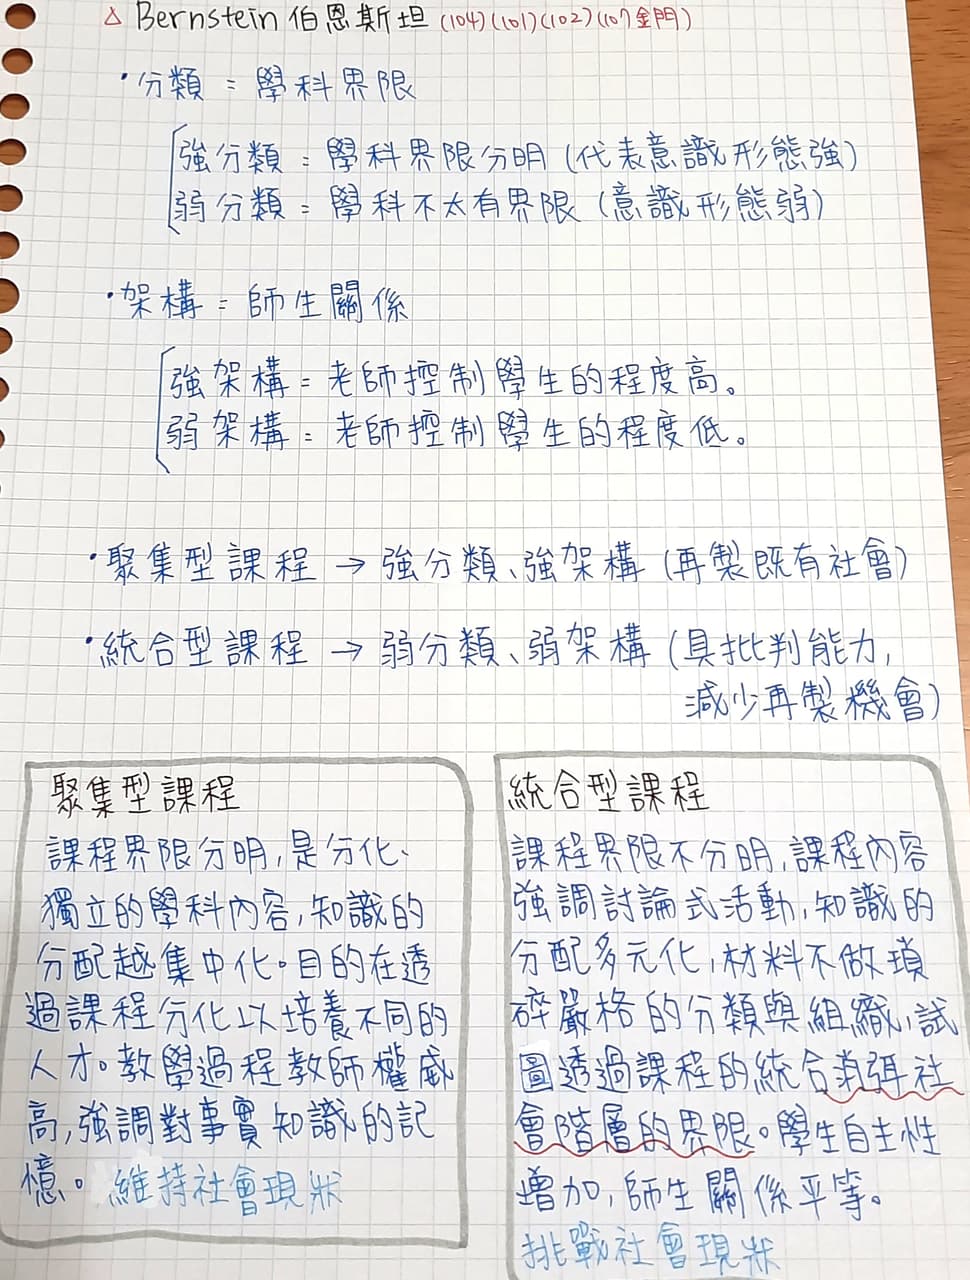 △ Bernstein 伯恩斯坦 (104)(101)(102)(107金門)
·分類 = 學科界限
強分類 = 學科界限分明 (代表意識形態強)
弱分類 = 學科不太有界限 (意識形態弱)
·架構 = 師生關係
強架構 = 老師控制學生的程度高。
弱架構 = 老師控制學生的程度低。
·聚集型課程 → 強分類、強架構 (再製既有社會)
·統合型課程 → 弱分類、弱架構 (具批判能力,
減少再製機會)
聚集型課程
課程界限分明,是分化、
獨立的學科內容,知識的
分配越集中化。目的在透
過課程分化以培養不同的
人才。教學過程教師權威
高,強調對事實知識的記
憶。維持社會現狀
統合型課程
課程界限不分明,課程內容
強調討論式活動,知識的
分配多元化,材料不做瑣
碎嚴格的分類與組織,試
圖透過課程的統合消弭社
會階層的界限。學生自主性
增加,師生關係平等。
挑戰社會現狀